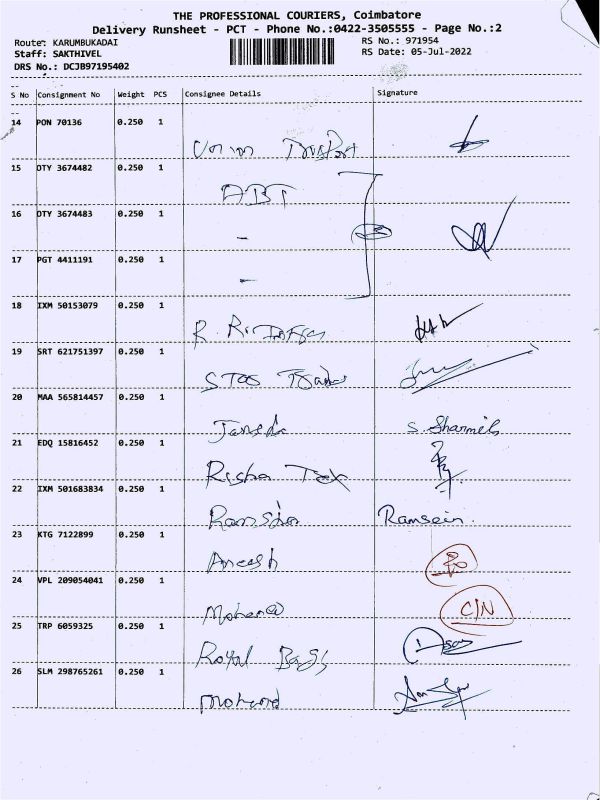 THE PROFESSIONAL COURIERS, Coimbatore
Delivery Runsheet - PCT - Phone No.:0422-3505555 - Page No.:2
Route: KARUMBUKADAI
RS No.: 971954
Staff: SAKTHIVEL
RS Date: 05-Jul-2022
DRS No.: DCJB97195402
S No Consignment No Weight PCS Consignee Details Signature
14 PON 70136 0.250 1
15 DTY 3674482 0.250 1
ABT
16 DTY 3674483 0.250 1
-
17 PGT 4411191 0.250 1
-
18 IXM 50153079 0.250 1
19 SRT 621751397 0.250 1
20 MAA 565814457 0.250 1
S. Sharmila
21 EDQ 15816452 0.250 1
Risha Tex
22 IXM 501683834 0.250 1
23 KTG 7122899 0.250 1
Aneesh
24 VPL 209054041 0.250 1
C/N
25 TRP 6059325 0.250 1
Royal Bags
26 SLM 298765261 0.250 1